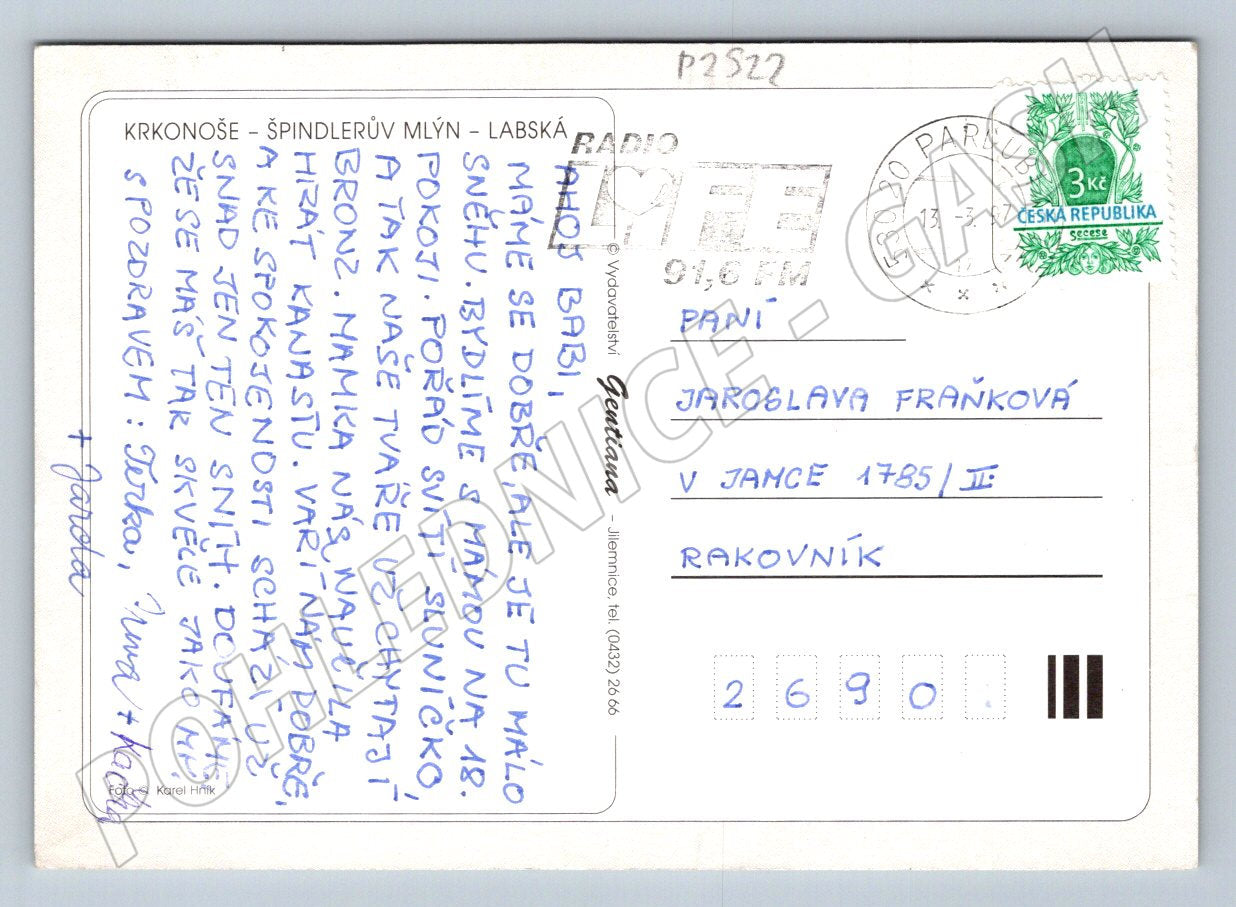 P2522
KRKONOŠE – ŠPINDLERŮV MLÝN – LABSKÁ
AHOJ BABI,
MÁME SE DOBŘE, ALE JE TU MÁLO
SNĚHU. BYDLÍME S MÁMOU NA 18.
POKOJI. POŘÁD SVÍTÍ SLUNÍČKO,
A TAK NAŠE TVÁŘE UŽ CHYTAJÍ
BRONZ. MAMKA NÁS NAUČILA
HRÁT KANASTU. VAŘÍ NÁM DOBŘE,
A KE SPOKOJENOSTI SCHÁZÍ UŽ
SNAD JEN TEN SNÍH. DOUFÁME,
ŽE SE MÁŠ TAK SKVĚLE JAKO MY.
S POZDRAVEM: Terka, + Kačka
+ Jarda
Foto © Karel Hník
© Vydavatelství Gentiana – Jilemnice, tel. (0432) 26 66
RADIO
LIFE
91,6 FM
530 20 PARDUBICE
13. -3.
3 Kč
ČESKÁ REPUBLIKA
Secese
PANÍ
JAROSLAVA FRAŇKOVÁ
V JAMCE 1785/II.
RAKOVNÍK
2 6 9 0 .
POHLEDNICE - GASH